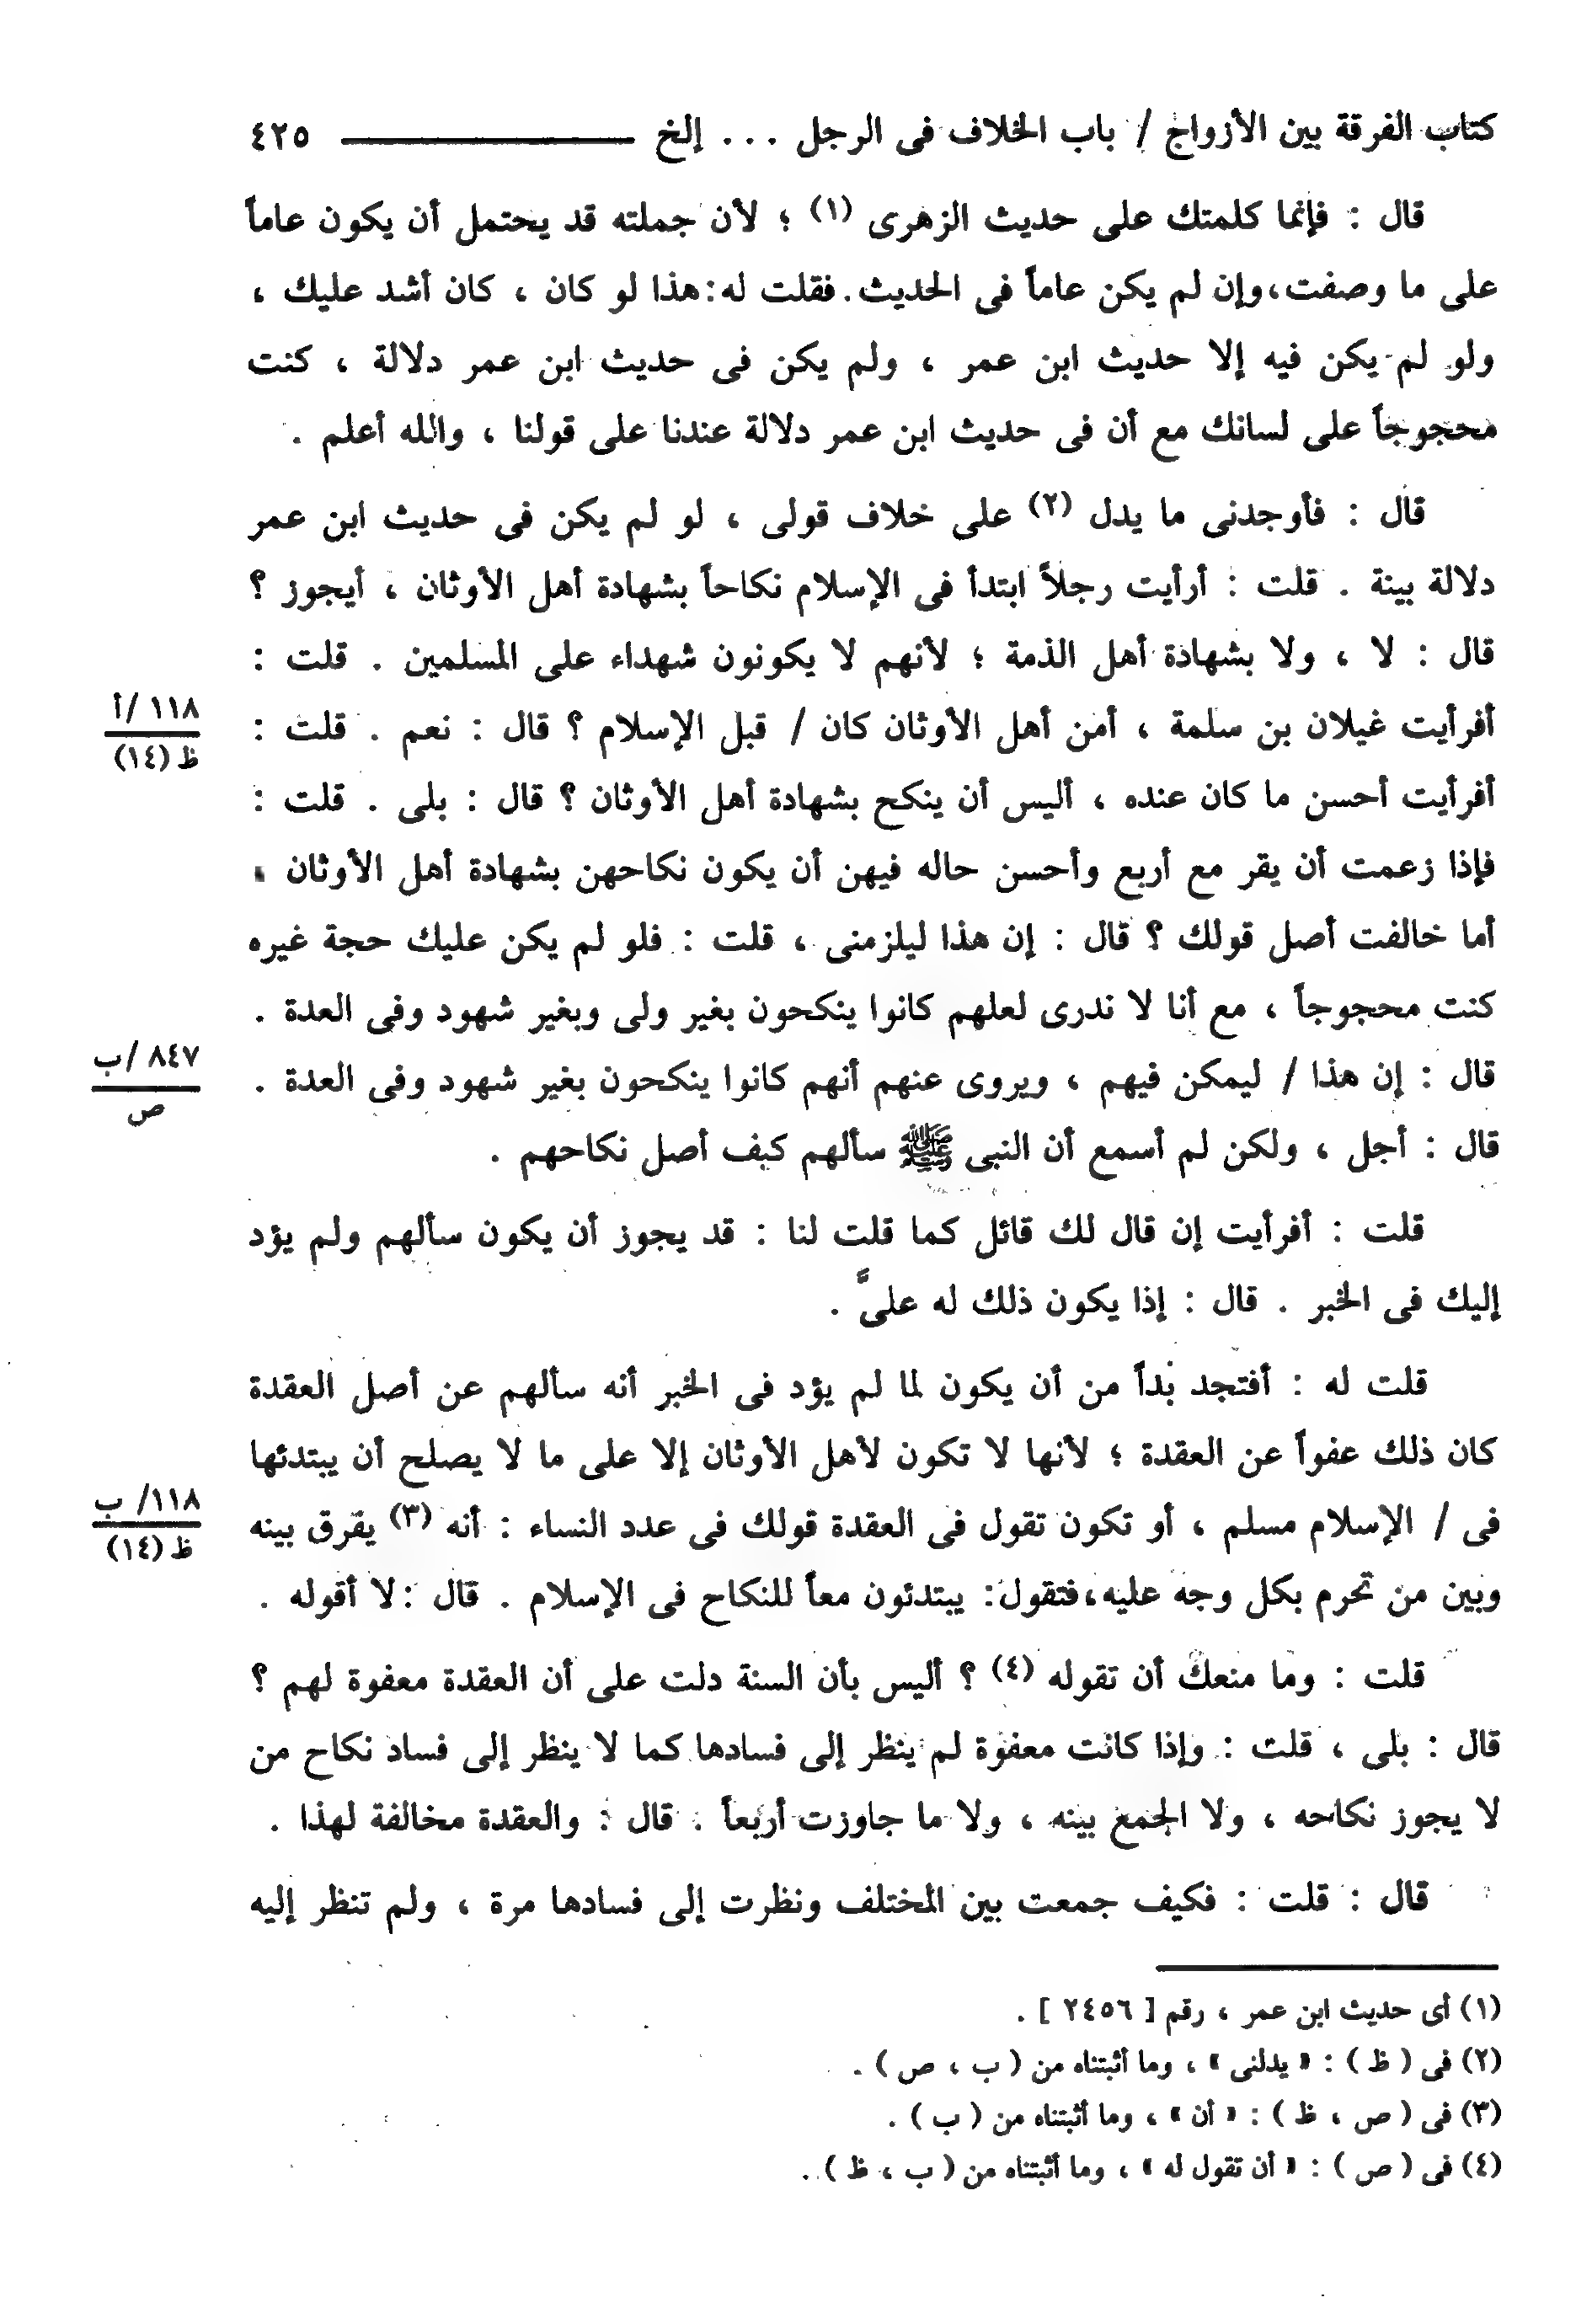 كتاب الفرقة بين الأزواج / باب الخلاف فى الرجل ... إلخ ٤٢٥
قال : فإنما كلمتك على حديث الزهرى (١) ؛ لأن جملته قد يحتمل أن يكون عاماً
على ما وصفت،وإن لم يكن عاماً فى الحديث.فقلت له:هذا لو كان ، كان أشد عليك ،
ولو لم يكن فيه إلا حديث ابن عمر ، ولم يكن فى حديث ابن عمر دلالة ، كنت
محجوجاً على لسانك مع أن فى حديث ابن عمر دلالة عندنا على قولنا ، والله أعلم .
قال : فأوجدنى ما يدل (٢) على خلاف قولى ، لو لم يكن فى حديث ابن عمر
دلالة بينة . قلت : أرأيت رجلاً ابتدأ فى الإسلام نكاحاً بشهادة أهل الأوثان ، أيجوز ؟
قال : لا ، ولا بشهادة أهل الذمة ؛ لأنهم لا يكونون شهداء على المسلمين . قلت :
أفرأيت غيلان بن سلمة ، أمن أهل الأوثان كان / قبل الإسلام ؟ قال : نعم . قلت :
١١٨ /أ
ظ (١٤)
أفرأيت أحسن ما كان عنده ، أليس أن ينكح بشهادة أهل الأوثان ؟ قال : بلى . قلت :
فإذا زعمت أن يقر مع أربع وأحسن حاله فيهن أن يكون نكاحهن بشهادة أهل الأوثان ،
أما خالفت أصل قولك ؟ قال : إن هذا ليلزمنى ، قلت : فلو لم يكن عليك حجة غيره
كنت محجوجاً ، مع أنا لا ندرى لعلهم كانوا ينكحون بغير ولى وبغير شهود وفى العدة .
قال : إن هذا / ليمكن فيهم ، ويروى عنهم أنهم كانوا ينكحون بغير شهود وفى العدة .
٨٤٧ /ب
ص
قال : أجل ، ولكن لم أسمع أن النبى ﷺ سألهم كيف أصل نكاحهم .
قلت : أفرأيت إن قال لك قائل كما قلت لنا : قد يجوز أن يكون سألهم ولم يؤد
إليك فى الخبر . قال : إذا يكون ذلك له علىَّ .
قلت له : أفتجد بُداً من أن يكون لما لم يؤد فى الخبر أنه سألهم عن أصل العقدة
كان ذلك عفواً عن العقدة ؛ لأنها لا تكون لأهل الأوثان إلا على ما لا يصلح أن يبتدئها
فى / الإسلام مسلم ، أو تكون تقول فى العقدة قولك فى عدد النساء : أنه (٣) يفرق بينه
١١٨/ ب
ظ (١٤)
وبين من تحرم بكل وجه عليه،فتقول: يبتدئون معاً للنكاح فى الإسلام . قال :لا أقوله .
قلت : وما منعك أن تقوله (٤) ؟ أليس بأن السنة دلت على أن العقدة معفوة لهم ؟
قال : بلى ، قلت : وإذا كانت معفوة لم ينظر إلى فسادها كما لا ينظر إلى فساد نكاح من
لا يجوز نكاحه ، ولا الجمع بينه ، ولا ما جاوزت أربعاً . قال : والعقدة مخالفة لهذا .
قال : قلت : فكيف جمعت بين المختلف ونظرت إلى فسادها مرة ، ولم تنظر إليه
(١) أى حديث ابن عمر ، رقم [ ٢٤٥٦ ] .
(٢) فى ( ظ ) : « يدلنى » ، وما أثبتناه من ( ب ، ص ) .
(٣) فى ( ص ، ظ ) : « أن » ، وما أثبتناه من ( ب ) .
(٤) فى ( ص ) : « أن تقول له » ، وما أثبتناه من ( ب ، ظ ) .